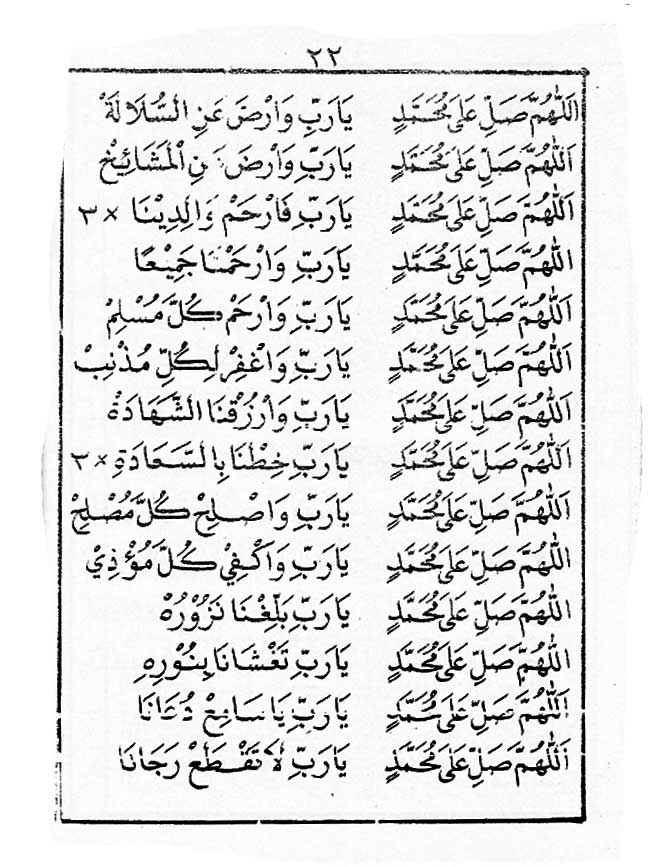 ٢٢
اَللّٰهُمَّ صَلِّ عَلَى مُحَمَّدٍ يَارَبِّ وَارْضَ عَنِ السُّلَالَةْ
اَللّٰهُمَّ صَلِّ عَلَى مُحَمَّدٍ يَارَبِّ وَارْضَ عَنِ الْمَشَائِخْ
اَللّٰهُمَّ صَلِّ عَلَى مُحَمَّدٍ يَارَبِّ فَارْحَمْ وَالِدِيْنَا ×٣
اَللّٰهُمَّ صَلِّ عَلَى مُحَمَّدٍ يَارَبِّ وَارْحَمْنَا جَمِيْعًا
اَللّٰهُمَّ صَلِّ عَلَى مُحَمَّدٍ يَارَبِّ وَارْحَمْ كُلَّ مُسْلِمْ
اَللّٰهُمَّ صَلِّ عَلَى مُحَمَّدٍ يَارَبِّ وَاغْفِرْ لِكُلِّ مُذْنِبْ
اَللّٰهُمَّ صَلِّ عَلَى مُحَمَّدٍ يَارَبِّ وَارْزُقْنَا الشَّهَادَةْ
اَللّٰهُمَّ صَلِّ عَلَى مُحَمَّدٍ يَارَبِّ خِطْنَا بِالسَّعَادَةِ ×٣
اَللّٰهُمَّ صَلِّ عَلَى مُحَمَّدٍ يَارَبِّ وَاصْلِحْ كُلَّ مُصْلِحْ
اَللّٰهُمَّ صَلِّ عَلَى مُحَمَّدٍ يَارَبِّ وَاكْفِيْ كُلَّ مُؤْذِيْ
اَللّٰهُمَّ صَلِّ عَلَى مُحَمَّدٍ يَارَبِّ بَلِّغْنَا نَزُوْرُهْ
اَللّٰهُمَّ صَلِّ عَلَى مُحَمَّدٍ يَارَبِّ تَغْشَانَا بِنُوْرِهِ
اَللّٰهُمَّ صَلِّ عَلَى مُحَمَّدٍ يَارَبِّ يَا سَامِعْ دُعَانَا
اَللّٰهُمَّ صَلِّ عَلَى مُحَمَّدٍ يَارَبِّ لَا تَقْطَعْ رَجَانَا